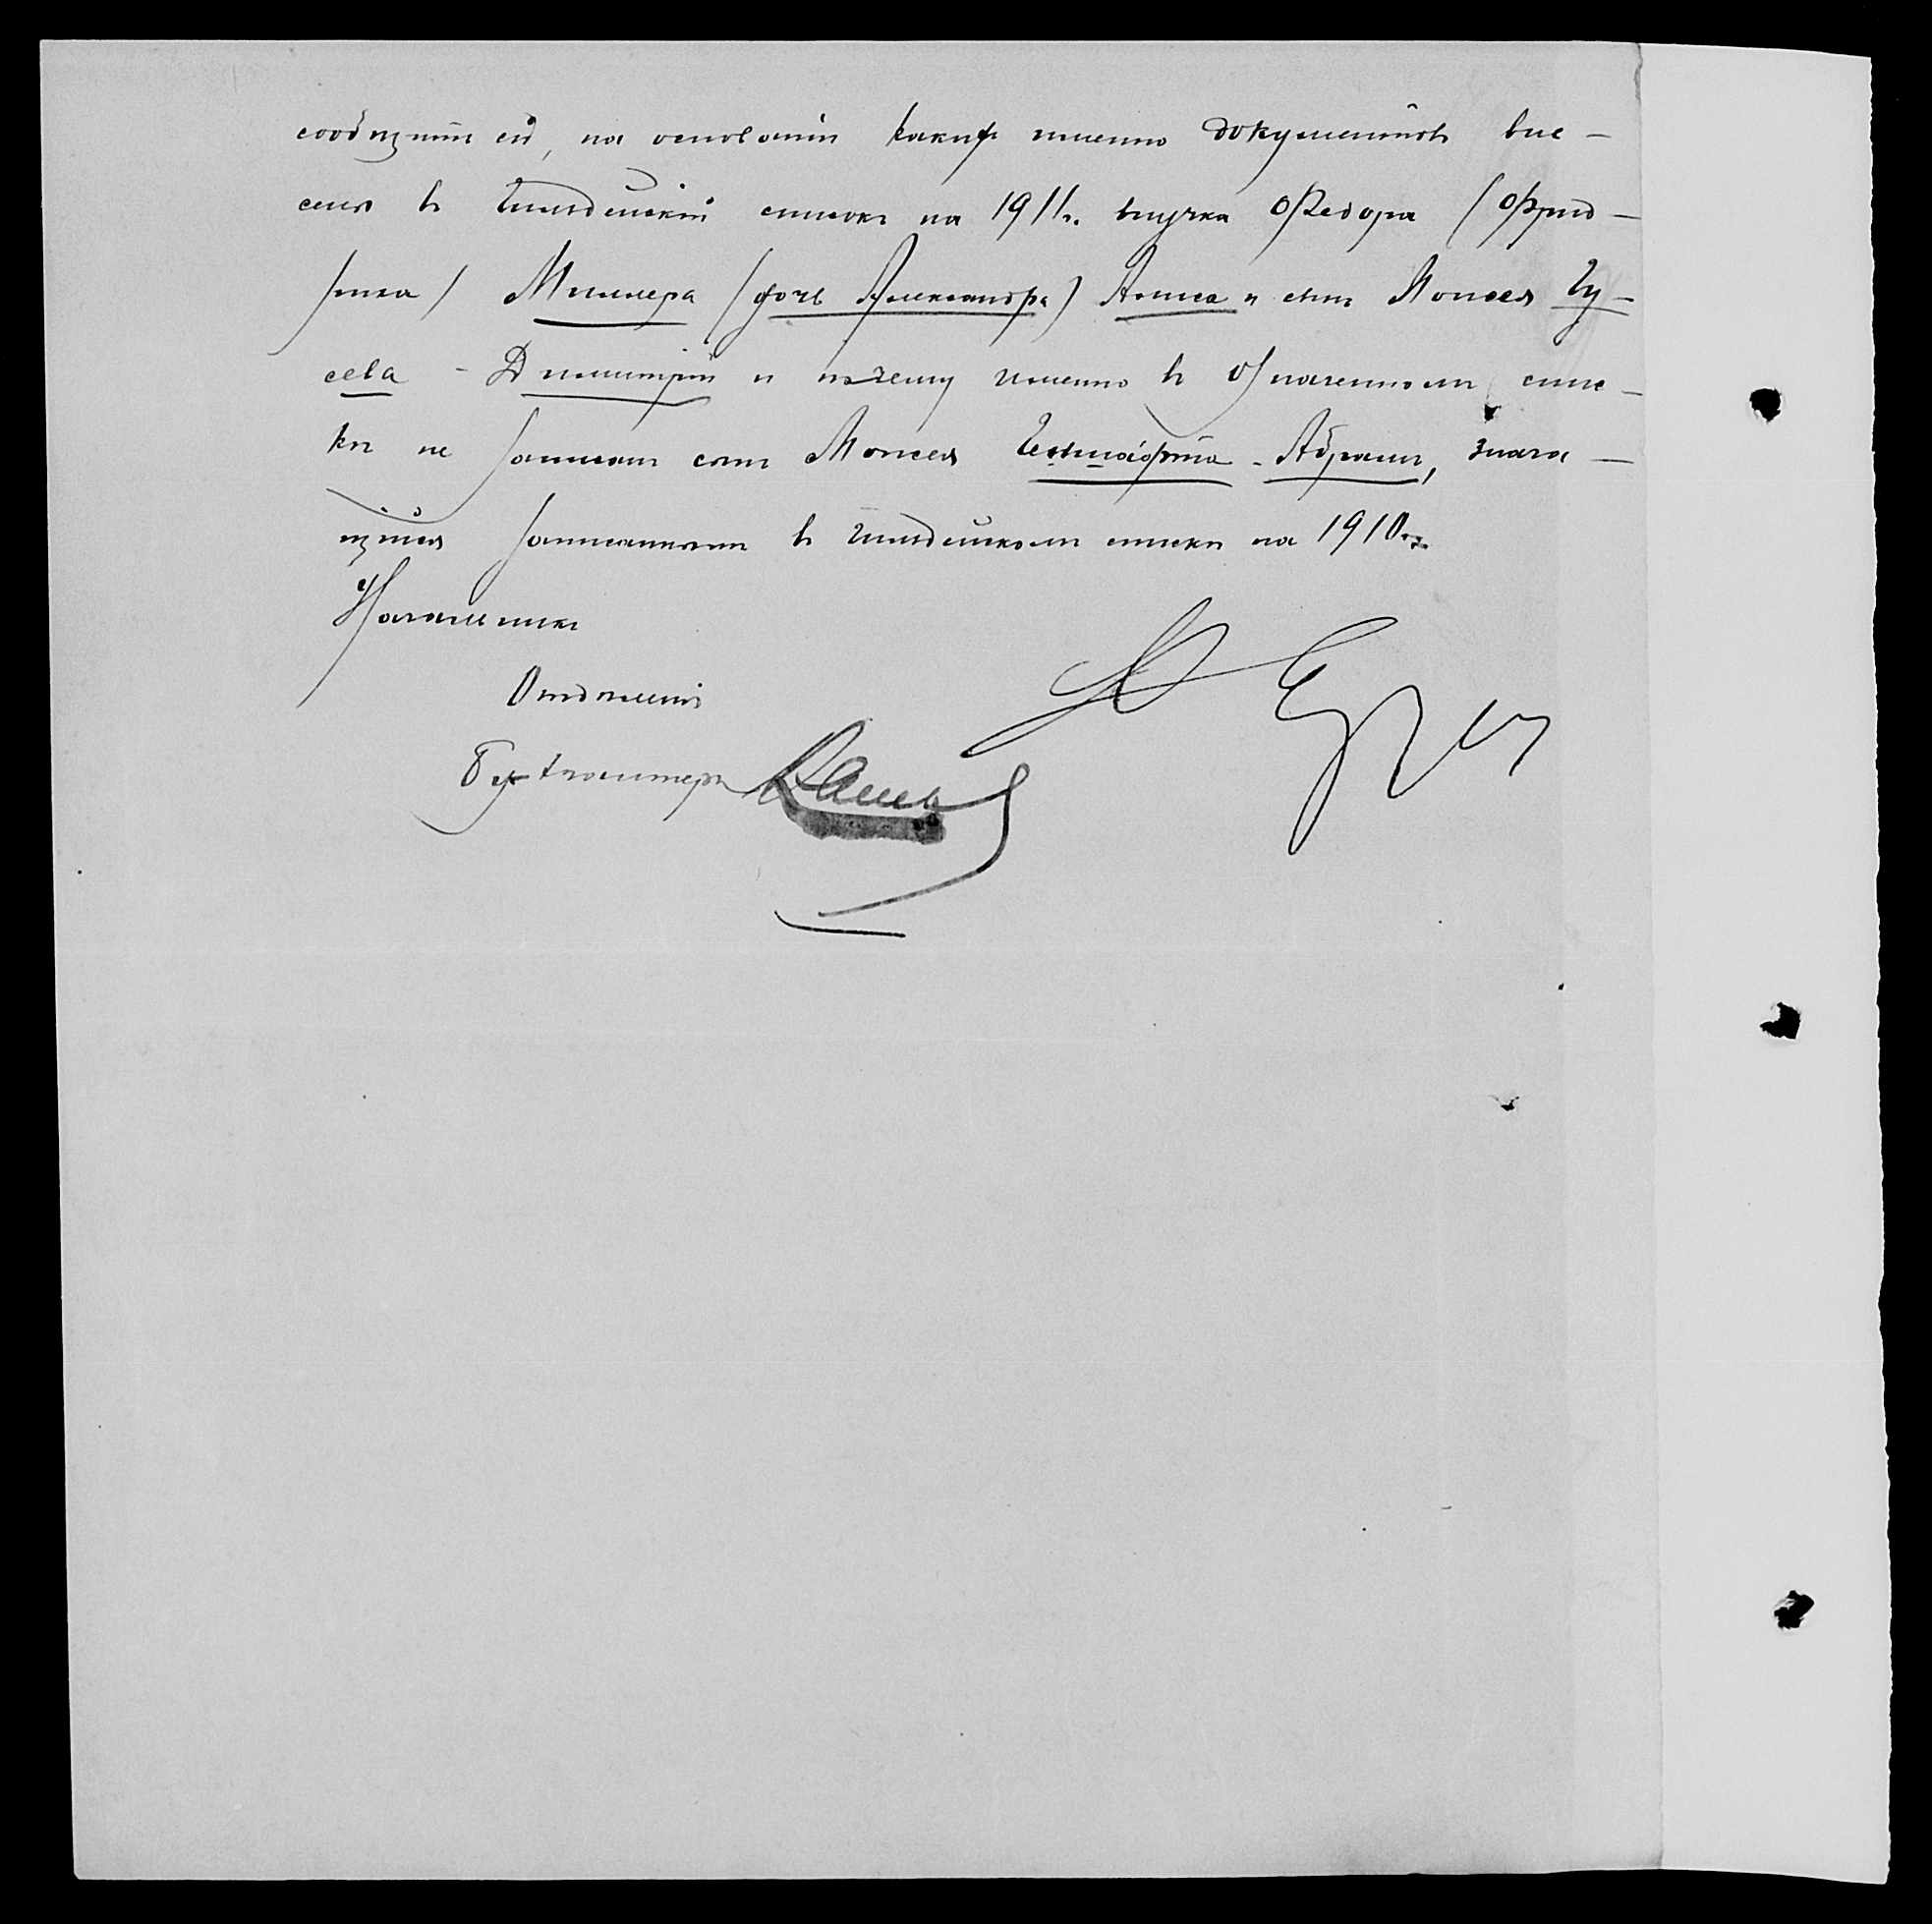 сообщить ей, на основаніи какихъ именно документовъ вне-
сены въ гильдейскій списокъ на 1911 г. внучка Ѳедора (Фрид-
риха) Миллера (дочь Александра) Алиса и сынъ Моисея Гу-
сева - Димитрій и почему именно въ означенномъ спис-
кѣ не записанъ сынъ Моисея - Абрамъ, знача-
щійся записаннымъ въ гильдейскомъ спискѣ на 1910 г.
Начальникъ
Отдѣленія
Бухгалтеръ